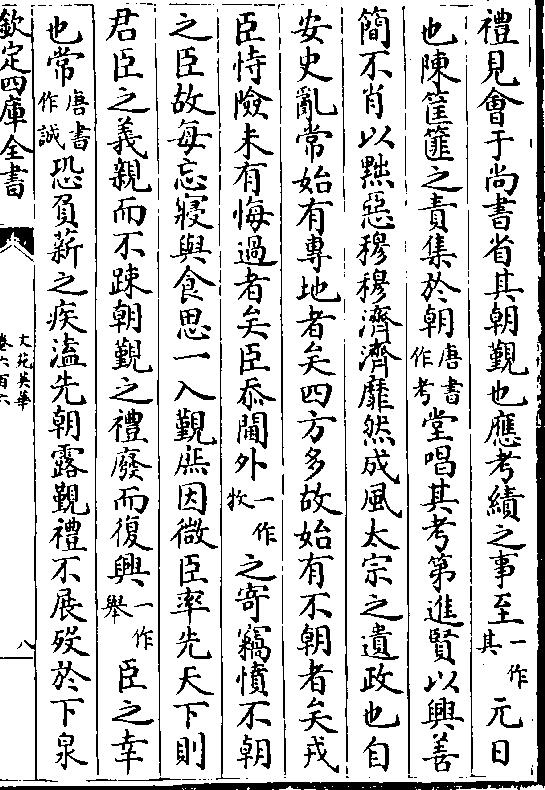 禮見會于尚書省其朝覲也應考績之事至一作其元日
也陳筐篚之貢集於朝唐書作考堂唱其考第進賢以興善
簡不肖以黜惡穆穆濟濟靡然成風太宗之遺政也自
安史亂常始有專地者矣四方多故始有不朝者矣戎
臣恃險未有悔過者矣臣忝閫外一作牧之寄竊憤不朝
之臣故每忘寢與食思一入覲庶因微臣率先天下則
君臣之義親而不踈朝覲之禮廢而復興一作舉臣之幸
也常唐書作誠恐負薪之疾溘先朝露覲禮不展歿於下泉
欽定四庫全書
文苑英華
卷六百六
八